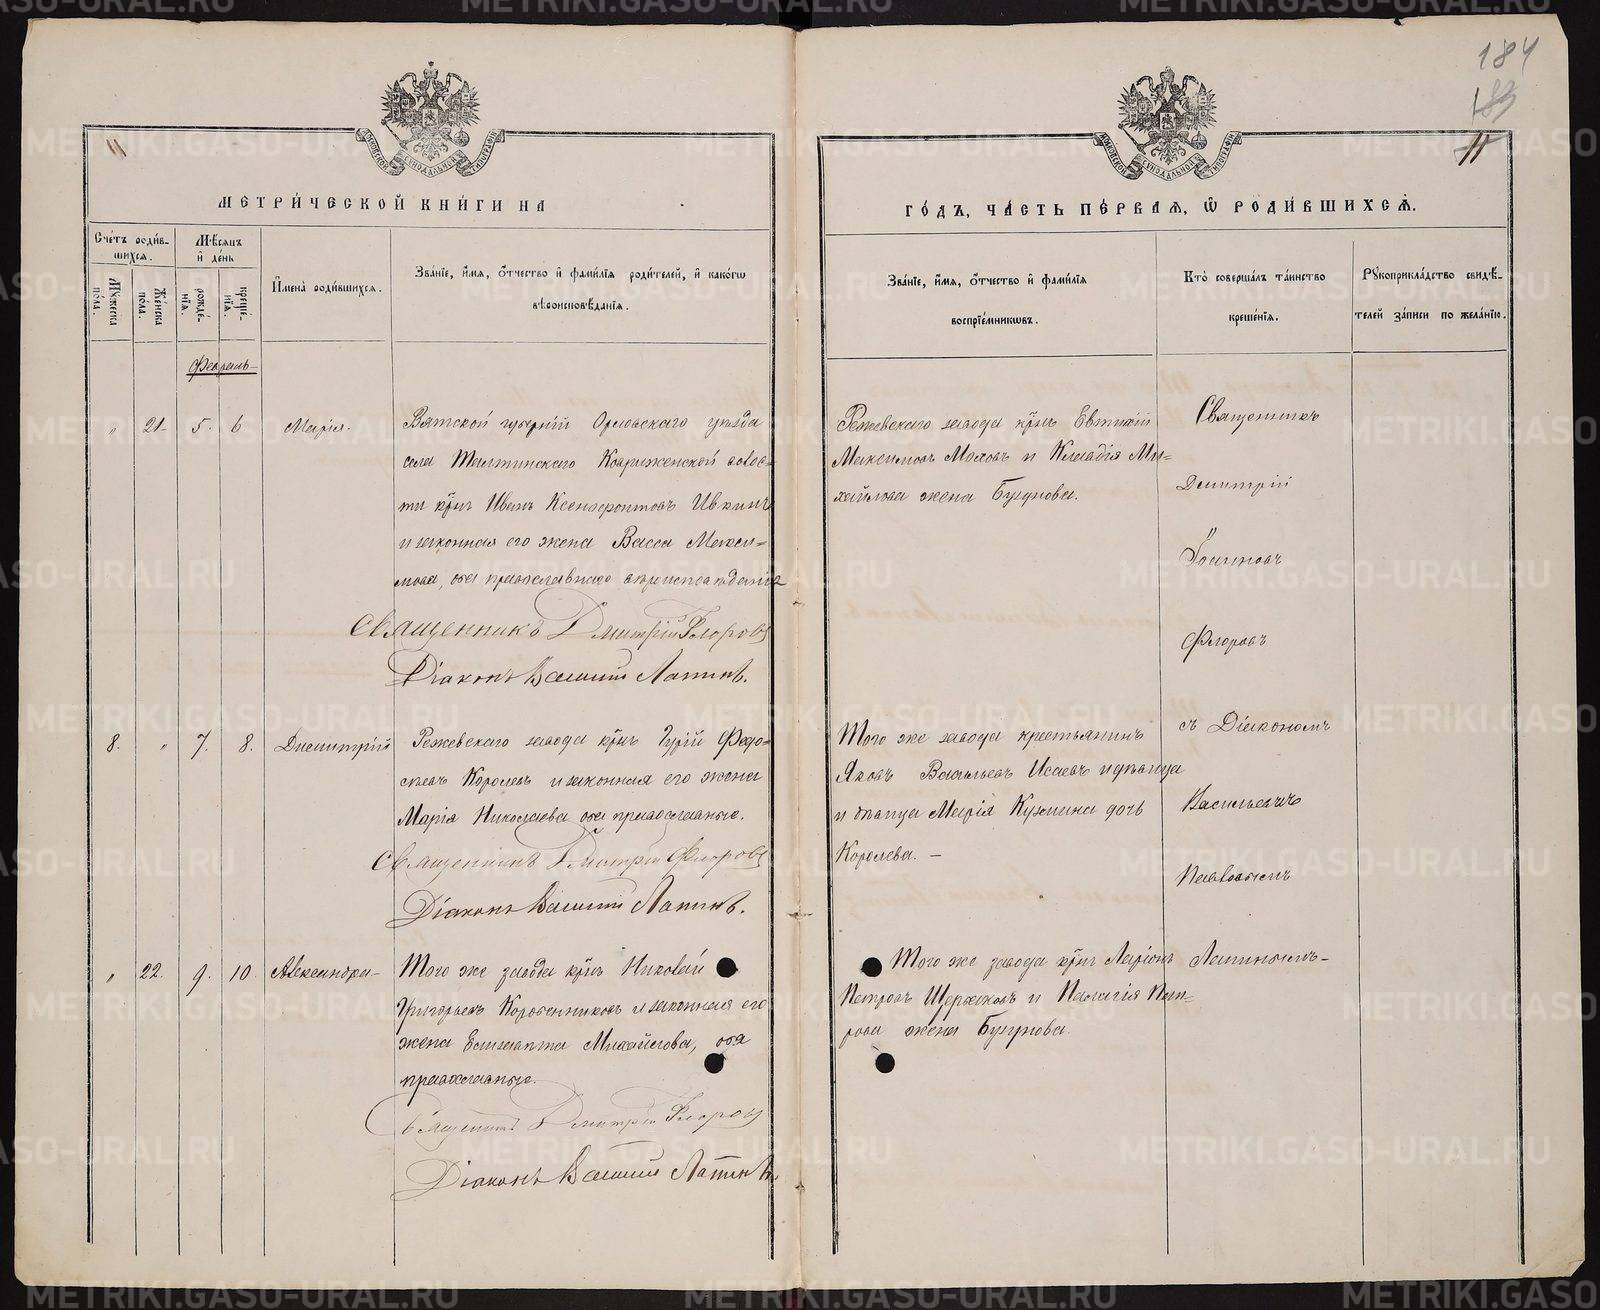 184
183
11
МОСКОВСКОЙ СѴНОДАЛЬНОЙ ТИПОГРАФІИ
МОСКОВСКОЙ СѴНОДАЛЬНОЙ ТИПОГРАФІИ
МЕТРИ́ЧЕСКОЙ КНИ́ГИ НА
ГО́ДЪ, ЧА́СТЬ ПЕ́РВАѦ, Ѡ РОДИ́ВШИХСѦ.
Сче́тъ роди́в-
шихсѧ.
Мꙋ́жеска по́ла.
Же́нска по́ла.
Мѣ́сѧцъ
и҆ де́нь
рожде́-
нїѧ.
креще́-
нїѧ.
И҆мена̀ роди́вшихсѧ.
Зва́нїе, и҆́мѧ, ѻ҆́тчество и҆ фами́лїѧ роди́телей, и҆ како́гѡ
вѣроисповѣ́данїѧ.
Зва́нїе, и҆́мѧ, ѻ҆́тчество и҆ фами́лїѧ
воспрїе́мникѡвъ.
Кто̀ соверша́лъ та́инство
креще́нїѧ.
Рꙋкоприкла́дство свидѣ́-
телей за́писи по жела́нїю.
Февраль
" 21. 5. 6 Марія.
Вятской губерніи Орловскаго уѣзда
села Талтинскаго волос-
ти крѣн Иванъ Ксенофонтовъ Ивкинъ
и законная его жена Васса Макси-
мова, оба православнаго вѣроисповѣданія
Священникъ Дмитрій Флоровъ
Діаконъ Василий Лапинъ.
Режевскаго завода крѣн Евтихій
Максимовъ Моховъ и Клавдія Ми-
хайлова жена Бузунова.
Священникъ
Димитрій
Іоанновъ
Флоровъ
съ Діакономъ
Васильемъ
Павловымъ
Лапинымъ-
8. " 7. 8. Димитрій
Режевскаго завода крѣн Гурій Федо-
сѣевъ Королевъ и законная его жена
Марія Николаева оба православные.
Священникъ Дмитрій Флоровъ
Діаконъ Василий Лапинъ.
Того же завода крестьянинъ
Яковъ Васильевъ Исаевъ и дѣвица
и дѣвица Марія Кузмина дочь
Королева. —
" 22. 9. 10. Александра-
Того же завода крѣн Николай
Григорьевъ Коровенниковъ и законная его
жена Елизавета Михайлова, оба
православные.
Священникъ Дмитрій Флоровъ
Діаконъ Василий Лапинъ
Того же завода крѣн Ларіонъ
Петровъ Щербаковъ и Палагія Пет-
рова жена Бузунова.
METRIKI.GASO-URAL.RU